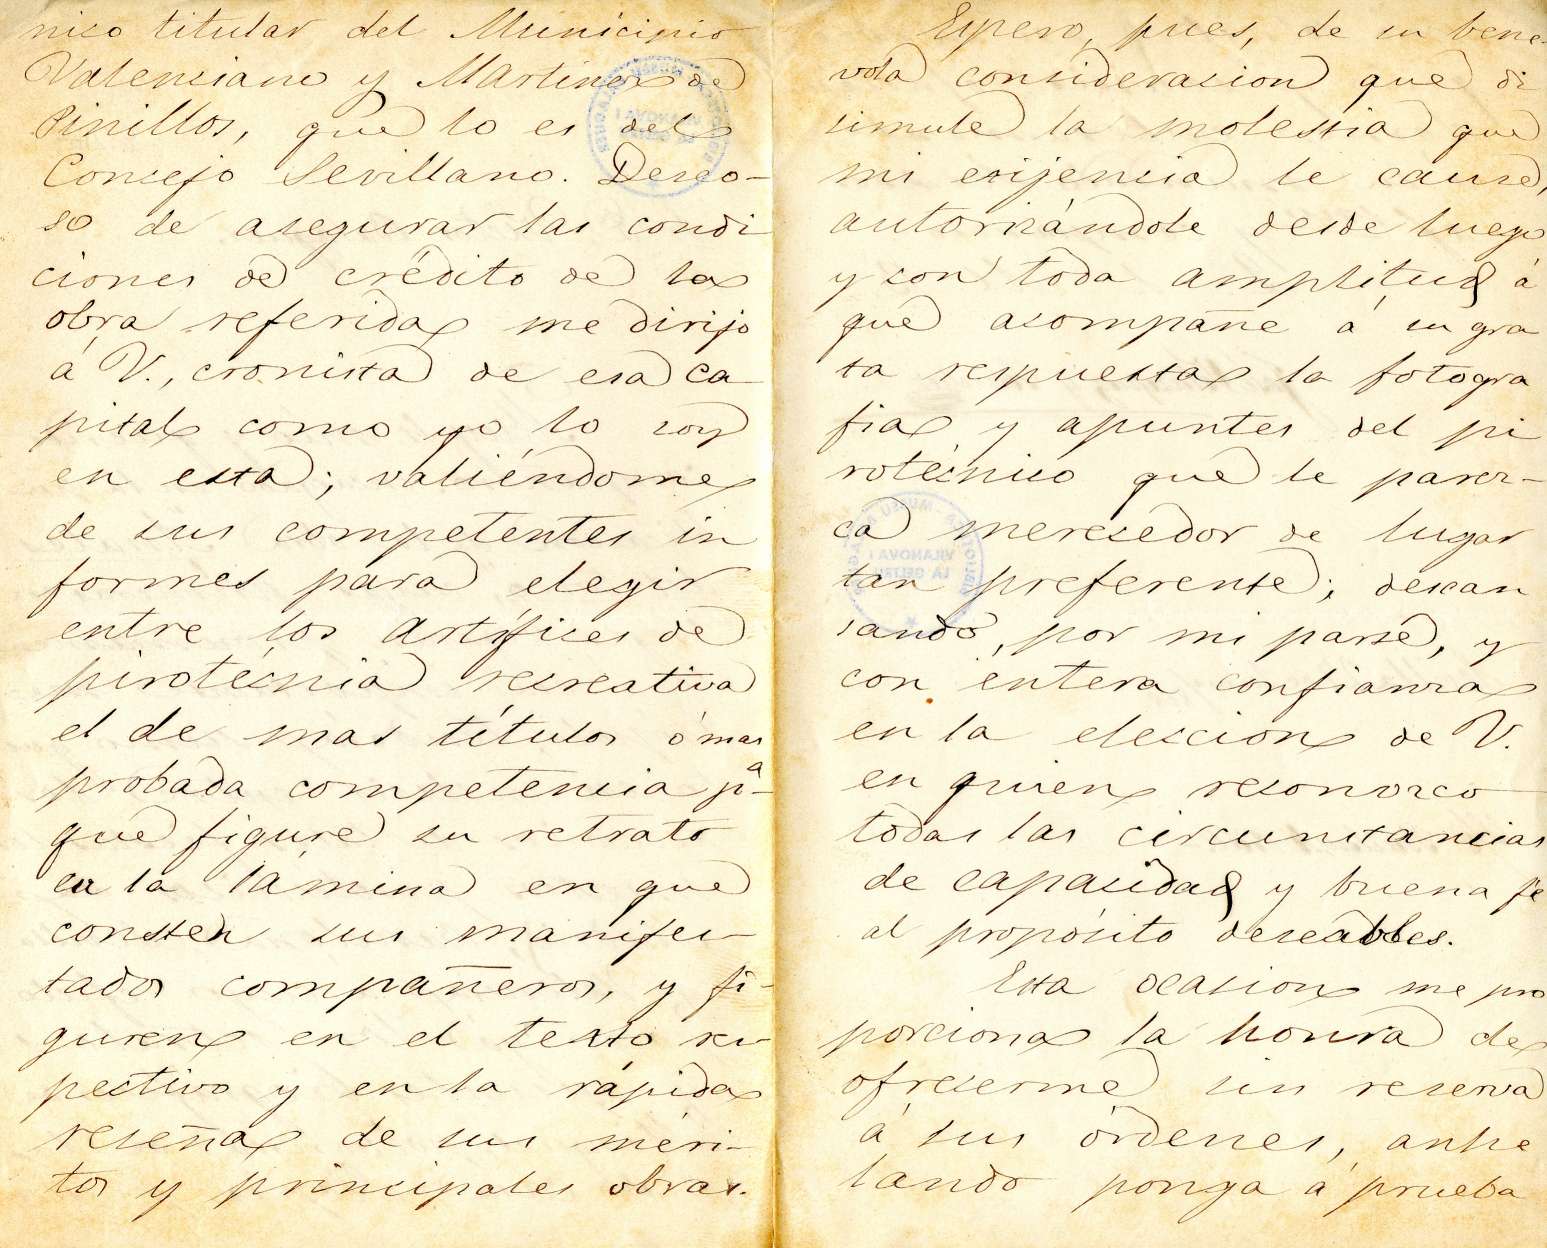 nico titular del Municipio
Valenciano y Martinez de
Pinillos, que lo es del
Concejo Sevillano. Deseo-
so de asegurar las condi
ciones de crédito de la
obra referida me dirijo
á V., cronista de esa ca
pital como yo lo soy
en esta; valiéndome
de sus competentes in
formes para elegir
entre los artífices de
pirotécnia recreativa
el de mas títulos ó mas
probada competencia pª
que figure su retrato
en la lámina en que
consten sus manifes-
tados compañeros, y fi-
guren en el texto res-
pectivo y en la rápida
reseña de sus méri-
tos y principales obras.
Espero, pues, de su bene-
vola consideracion que di
simule la molestia que
mi exijencia le cause,
autorizándole desde luego
y con toda amplitud á
que acompañe á su gra
ta respuesta la fotogra
fia y apuntes del pi
rotécnico que le parez-
ca merecedor de lugar
tan preferente; descan
sando, por mi parte, y
con entera confianza
en la eleccion de V.
en quien reconozco
todas las circunstancias
de capacidad y buena fe
al propósito deseables.
Esta ocasion me pro
porciona la honra de
ofrecerme sin reserva
á sus órdenes, anhe
lando ponga á prueba
VILANOVA I
LA GELTRÚ